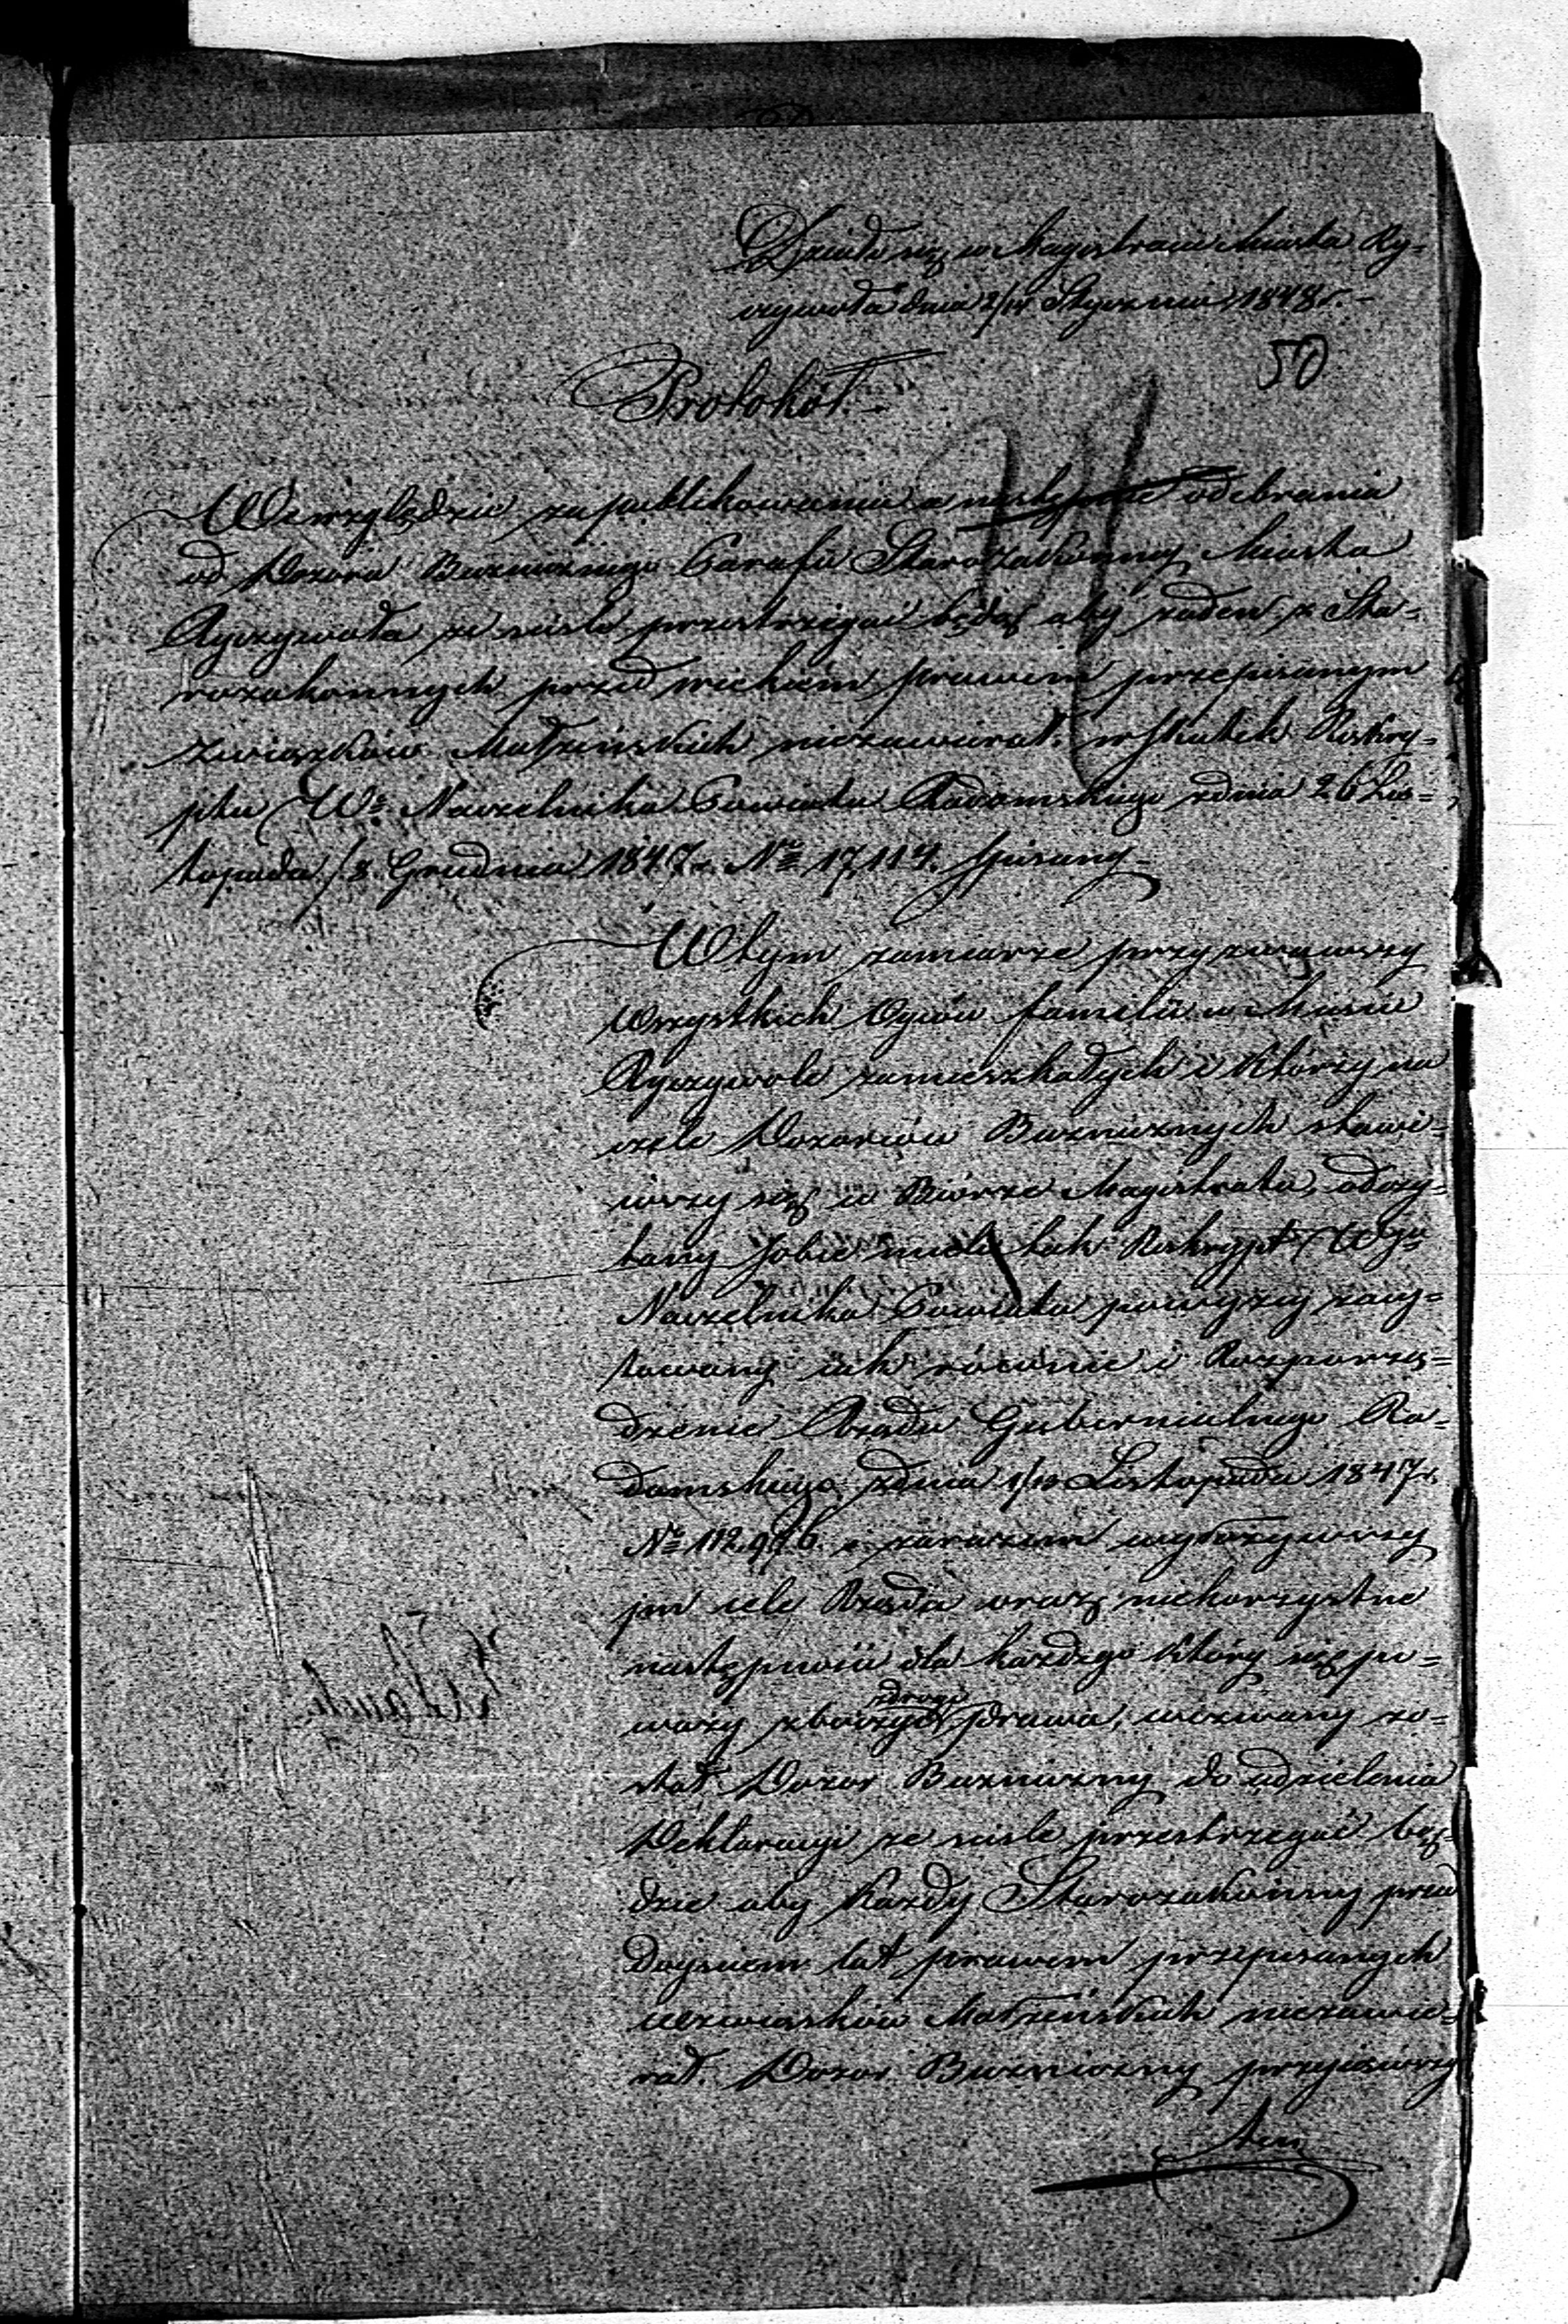 Działo się w Magistracie Miasta Ry-
czywoła dnia 2/14 Stycznia 1848 r.
50
Protokół.
We względzie zapublikowania a odebrania
od Dozoru Bużniczego Parafii Starozakonnej Miasta
Ryczywoła że ściśle przestrzegać będą aby żaden z Sta-
rozakonnych przed wiekiem prawem przepisanym
związków Małżeńskich niezawierał. w skutek Reskry-
ptu Wo Naczelnika Powiatu Radomskiego z dnia 26 Lis-
topada/8 Grudnia 1847 r. No 17,114. spisany
W tym zamiarze przyzwawszy
Wszystkich Oyców familii w Mieście
Ryczywole zamieszkałych i którzy na
czele Dozorców Bużnicznych stawi-
wszy się w Biórze Magistratu, odczy-
tany sobie mieli tak Reskrypt Wgo
Naczelnika Powiatu powyżey zacy-
towany iak równie i Rozporzą-
dzenie Rządu Gubernialnego Ra-
domskiego z dnia 1/13 Listopada 1847 r.
i zarazem wyłożywszy
im cele Rządu oraz niekorzystne
następności dla każdego który się po-
waży zboczyć z drogi prawa, wezwany zo-
stał Dozor Bużniczny do udzielenia
Deklaracyi że ściśle przestrzegać bę-
dzie aby każdy Starozakonny przed
Doyściem lat prawem przepisanych
związków Małżeńskich niezawie-
rał. Dozor Bużniczny przyiąwszy
ten